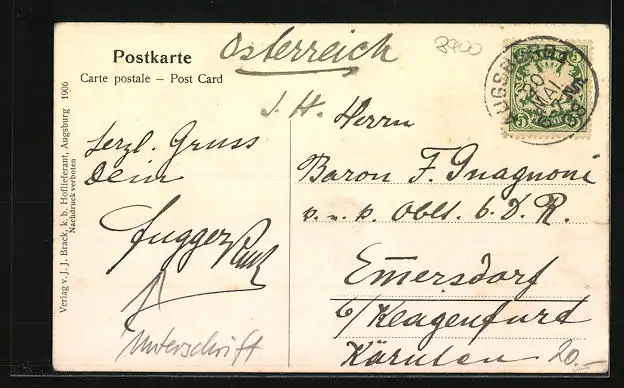 Postkarte
Carte postale – Post Card
Österreich
8900
AUGSBURG
MAI
5 PFENNIG
S. H. Herrn
Baron F. Gnagnoni
v. u. p. Oblt. b. D. R.
Emersdorf
b/ Klagenfurt
Kärnten
20.–
herzl. Gruss
Dein
Fugger
Unterschrift
Verlag v. J. J. Brack, k. b. Hoflieferant, Augsburg 1906
Nachdruck verboten